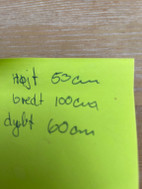 Højt 50cm
bredt 100cm
dybt 60cm